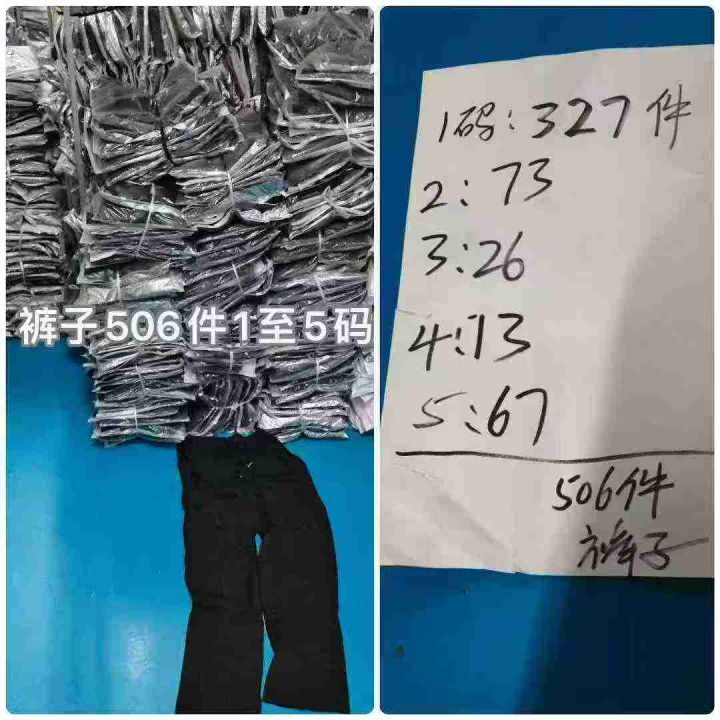 裤子506件1至5码
1码:327件
2:73
3:26
4:13
5:67
506件
裤子